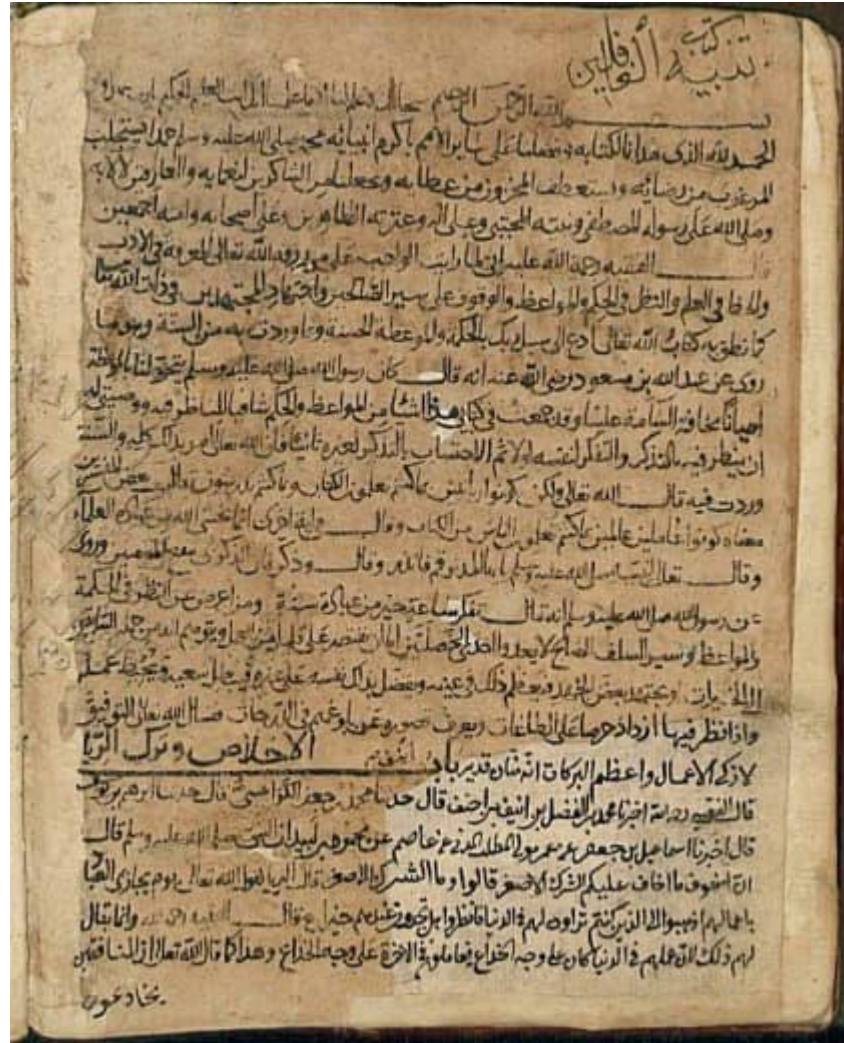 كتاب
تنبيه الغافلين
بسم الله الرحمن الرحيم
الحمد لله الذي هدانا لكتابه وفضلنا على ساير الامم باكرم انبيائه محمد صلى الله عليه وسلم حمدا يستجلب
المرغوب من رضائه ويستعطف المخزون من عطائه ويجعلنا من الشاكرين لنعمايه والعارفين لالايه
وصلى الله على رسوله المصطفى ونبيه المجتبى وعلى اله وعترته الطاهرين وعلى اصحابه وامته اجمعين
قال الفقيه رحمة الله عليه اني لما رايت الواجب على من رزقه الله تعالى المعرفة في الادب
والحظ في العلم والنظر في الحكم والمواعظ والوقوف على سير الصالحين واجتهاد المجتهدين في ذات الله تعالى
كما نطق به كتاب الله تعالى ادع الى سبيل ربك بالحكمة والموعظة الحسنة وما وردت به من السنة وهو ما
روى عن عبد الله بن مسعود رضي الله عنه انه قال كان رسول الله صلى الله عليه وسلم يتخولنا بالموعظة
احيانا مخافة السآمة علينا وقد جمعت في كتابي هذا شيا من المواعظ والحكم شافيا للناظر فيه ووصيتي له
ان ينظر فيه بالتذكر والتفكر لنفسه اولا ثم الاحتساب بالتذكير لغيره ثانيا فان الله تعالى امر بذلك كله والسنة
وردت فيه قال الله تعالى ولكن كونوا ربانين بما كنتم تعلمون الكتاب وبما كنتم تدرسون قال بعض المفسرين
معناه كونوا عاملين عالمين بما كنتم تعلمون الناس من الكتاب وقال في اية اخرى انما يخشى الله من عباده العلماء
وقال تعالى لنبيه صلى الله عليه وسلم يا ايها المدثر قم فانذر وقال وذكر فان الذكرى تنفع المؤمنين وروى
عن رسول الله صلى الله عليه وسلم انه قال تفكر ساعة خير من عبادة سنة ومن اعرض عن النظر في الحكمة
والمواعظ وسير السلف الصالح لا يعدو احدى الخصلتين اما ان يقتصر على قليل من العمل ويتوهم انه من جملة السابقين
الى الخيرات او يجتهد بعض الجهد فيعظم ذلك في عينه ويفضل بذلك نفسه على غيره فيبطل سعيه ويحبط عمله
واذا نظر فيها ازداد حرصا على الطاعات ويعرف قصوره عن بلوغهم في الدرجات فنسال الله تعالى التوفيق
لازكى الاعمال واعظم البركات انه منان قدير باب الاخلاص وترك الريا
قال الفقيه اخبرنا محمد بن الفضل بن انيف بن اصف قال حدثنا محمد بن جعفر الكرابيسي قال حدثنا ابرهيم بن يوسف
قال اخبرنا اسماعيل بن جعفر عن عمرو مولى المطلب عن عاصم عن محمود بن لبيد ان النبي صلى الله عليه وسلم قال
ان اخوف ما اخاف عليكم الشرك الاصغر قالوا وما الشرك الاصغر قال الريا يقول الله تعالى يوم يجازى العباد
باعمالهم اذهبوا الى الذين كنتم تراون لهم في الدنيا فانظروا هل تجدون عندهم خيرا قال الفقيه رحمه الله وانما يقال
لهم ذلك لان عملهم في الدنيا كان على وجه الخداع فيعاملون في الاخرة على وجه الخداع وهذا كما قال الله تعالى ان المنافقين
يخادعون